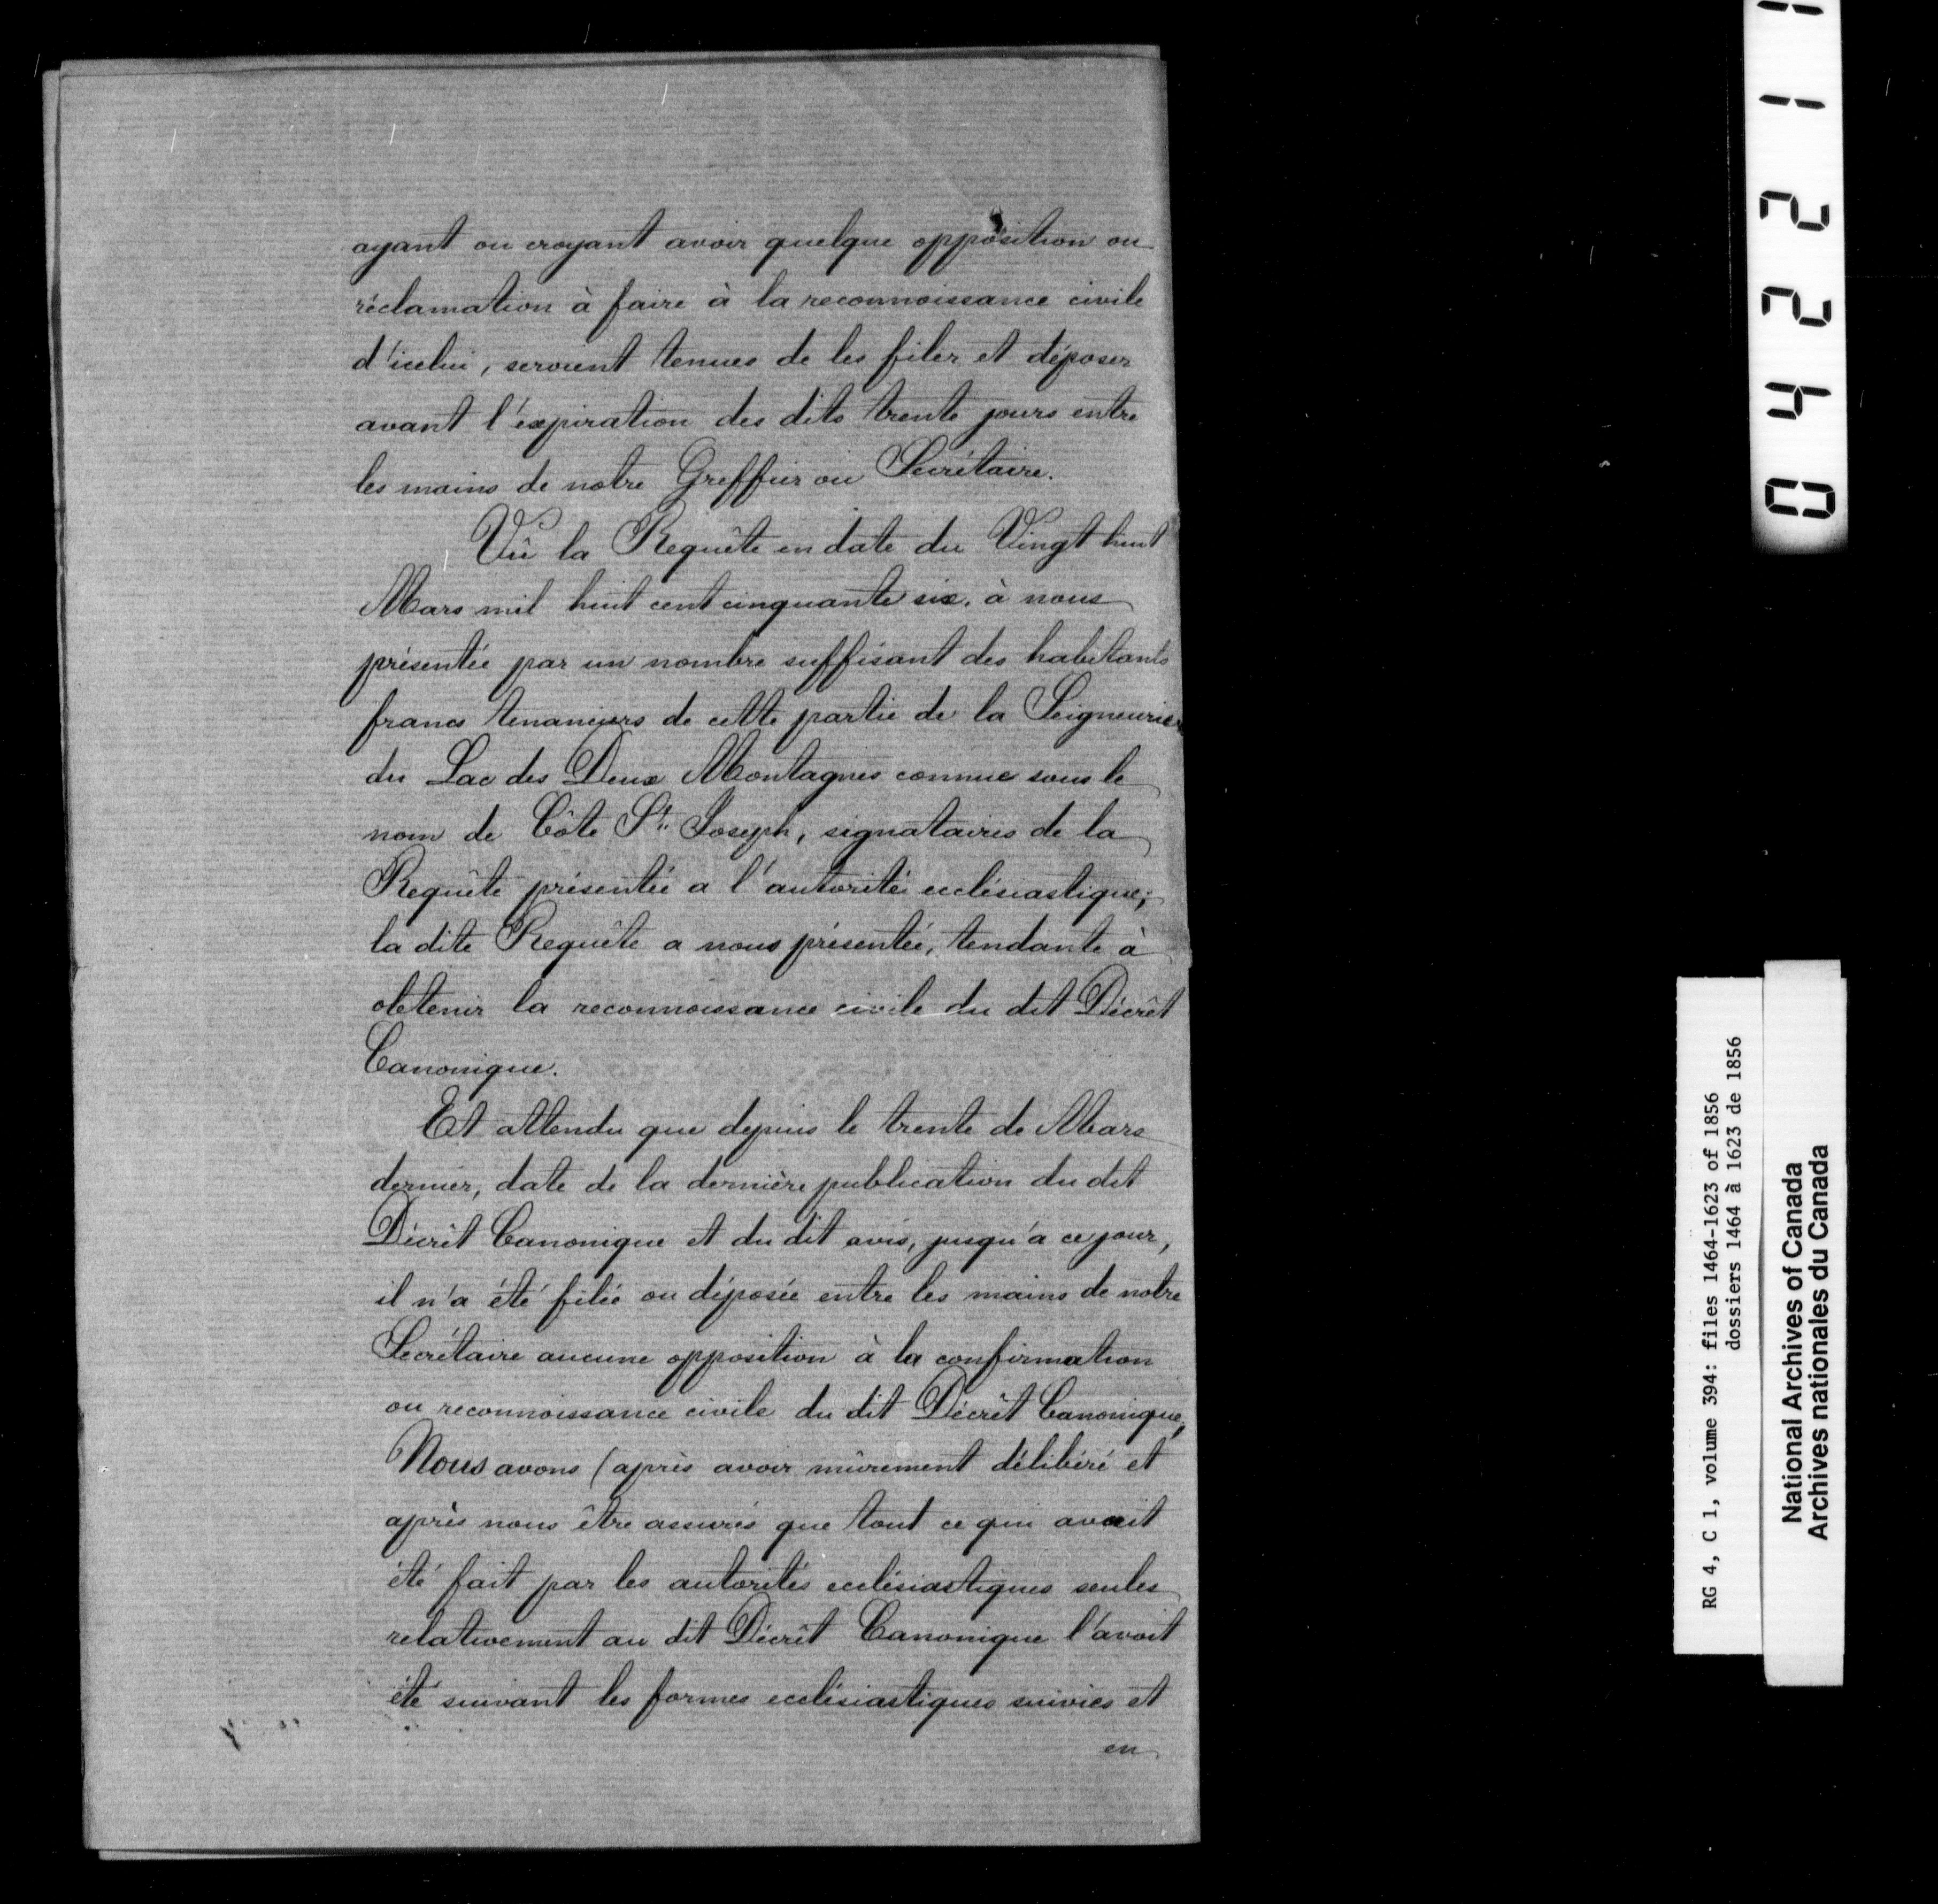 ayant ou croyant avoir quelque opposition ou
réclamation à faire à la reconnoissance civile
d'icelui, seroient tenues de les filer et déposer
avant l'expiration des dits trente jours entre
les mains de notre Greffier ou Secrétaire.
Vû la Requête en date du Vingt huit
Mars mil huit cent cinquante six, à nous
présentée par un nombre suffisant des habitants
francs tenanciers de cette partie de la Seigneurie
du Lac des Deux Montagnes connue sous le
nom de Côte St. Joseph, signataires de la
Requête présentée a l'autorité ecclésiastique;
la dite Requête a nous présentée, tendante à
obtenir la reconnoissance civile du dit Décrêt
Canonique.
Et attendu que depuis le trente de Mars
dernier, date de la dernière publication du dit
Décrêt Canonique et du dit avis, jusqu'à ce jour,
il n'a été filée ou déposée entre les mains de notre
Secrétaire aucune opposition à la confirmation
ou reconnoissance civile du dit Décrêt Canonique,
Nous avons (après avoir mûrement délibéré et
après nous être assurés que tout ce qui avait
été fait par les autorités ecclésiastiques seules
relativement au dit Décrêt Canonique l'avoit
été suivant les formes ecclésiastiques suivies et
en
04221
RG 4, C 1, volume 394: files 1464-1623 of 1856
dossiers 1464 à 1623 de 1856
National Archives of Canada
Archives nationales du Canada